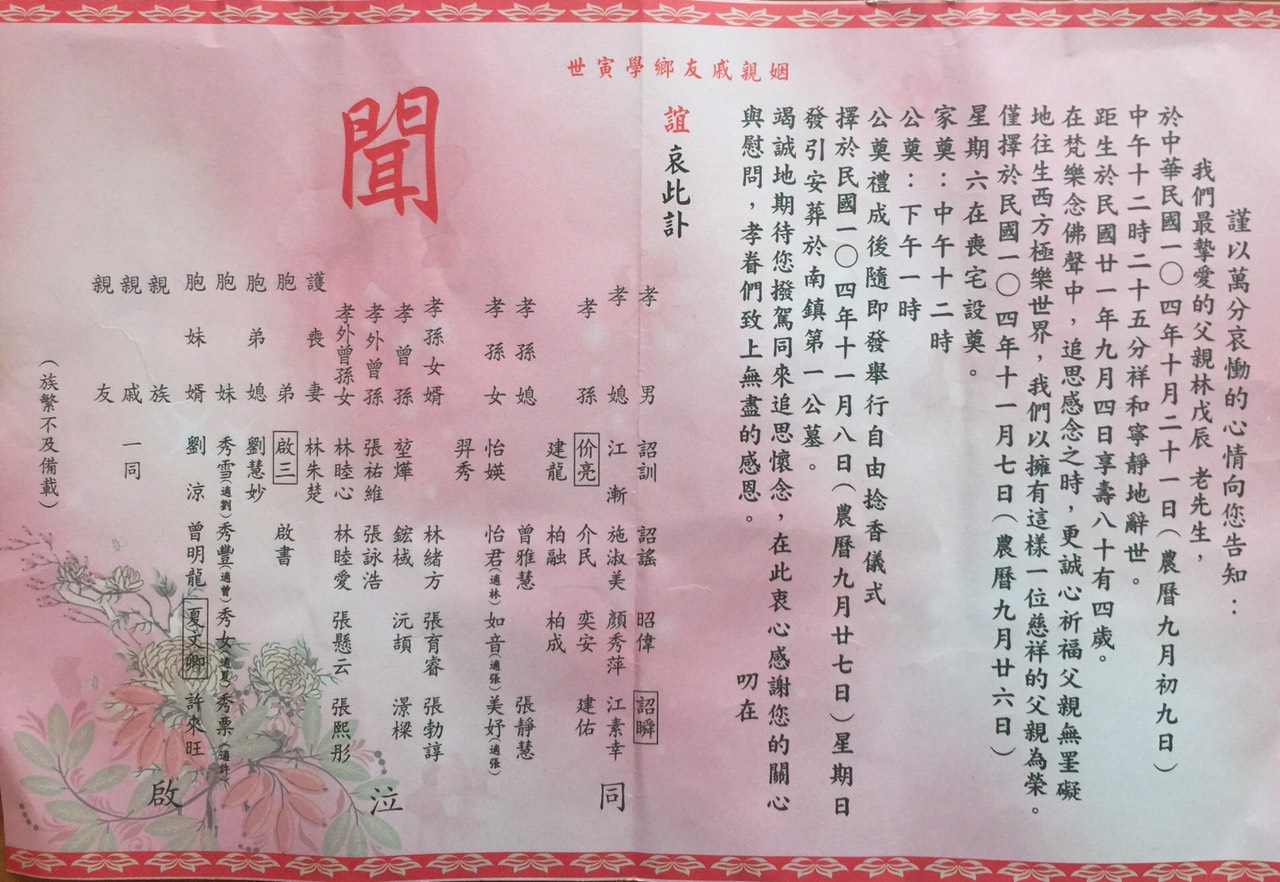 謹以萬分哀慟的心情向您告知：
我們最摯愛的父親林戊辰 老先生，
於中華民國一〇四年十月二十一日(農曆九月初九日)
中午十二時二十五分祥和寧靜地辭世。
距生於民國廿一年九月四日享壽八十有四歲。
在梵樂念佛聲中，追思感念之時，更誠心祈福父親無罣礙
地往生西方極樂世界，我們以擁有這樣一位慈祥的父親為榮。
僅擇於民國一〇四年十一月七日(農曆九月廿六日)
星期六在喪宅設奠。
家奠：中午十二時
公奠：下午一時
公奠禮成後隨即發舉行自由捻香儀式
擇於民國一〇四年十一月八日(農曆九月廿七日)星期日
發引安葬於南鎮第一公墓。
竭誠地期待您撥駕同來追思懷念，在此衷心感謝您的關心
與慰問，孝眷們致上無盡的感恩。 叨在
姻親戚友鄉學寅世
誼 哀此訃
聞
孝男 詔訓 詔謠 昭偉 詔瞬
孝媳 江漸 施淑美 顏秀萍 江素幸
孝孫 价亮 介民 奕安 建佑
建龍 柏融 柏成
孝孫媳 曾雅慧 張靜慧
孝孫女 怡媖 怡君(適林) 如音(適張) 美妤(適張)
羿秀
孝孫女婿 林緒方 張育睿 張勃諄
孝曾孫 堃燁 鋐棫 沅頡 澋樑
孝外曾孫 張祐維 張詠浩
孝外曾孫女 林睦心 林睦愛 張懸云 張熙彤
護喪妻 林朱楚
胞弟 啟三 啟書
胞弟媳 劉慧妙
胞妹 秀雪(適劉) 秀豐(適曾) 秀女(適夏) 秀票(適許)
胞妹婿 劉涼 曾明龍 夏文卿 許來旺
親族
親戚 一同
親友
同泣啟
(族繁不及備載)